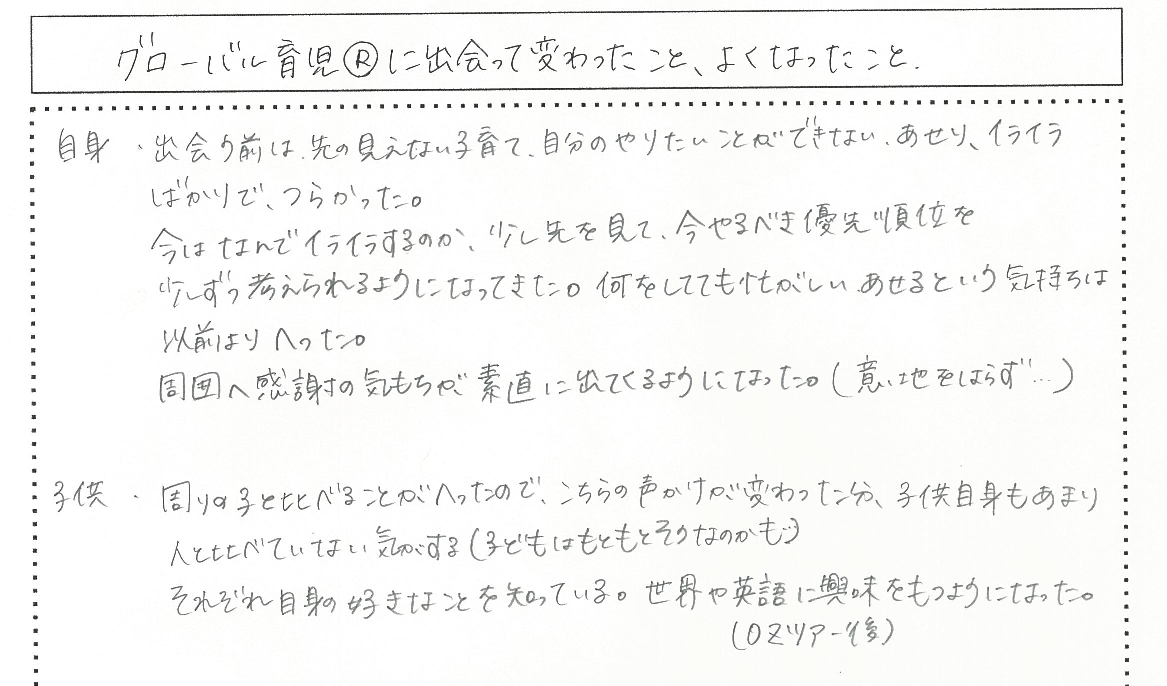 グローバル育児®に出会って変わったこと、よくなったこと.
自身・出会う前は、先の見えない子育て、自分のやりたいことができない、あせり、イライラ
ばかりで、つらかった。
今はなんでイライラするのか、少し先を見て、今やるべき優先順位を
少しずつ考えられるようになってきた。何をしてても忙がしい、あせるという気持ちは
以前よりへった。
周囲へ感謝の気もちが素直に出てくるようになった。(意地をはらず…)
子供・周りの子と比べることがへったので、こちらの声かけが変わった分、子供自身もあまり
人と比べていない気がする(子どもはもともとそうなのかも…)
それぞれ自身の好きなことを知っている。世界や英語に興味をもつようになった。
(OZツアー後)